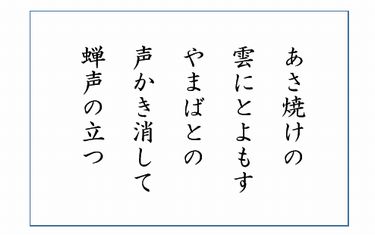 あさ焼けの
雲にとよもす
やまばとの
声かき消して
蝉声の立つ